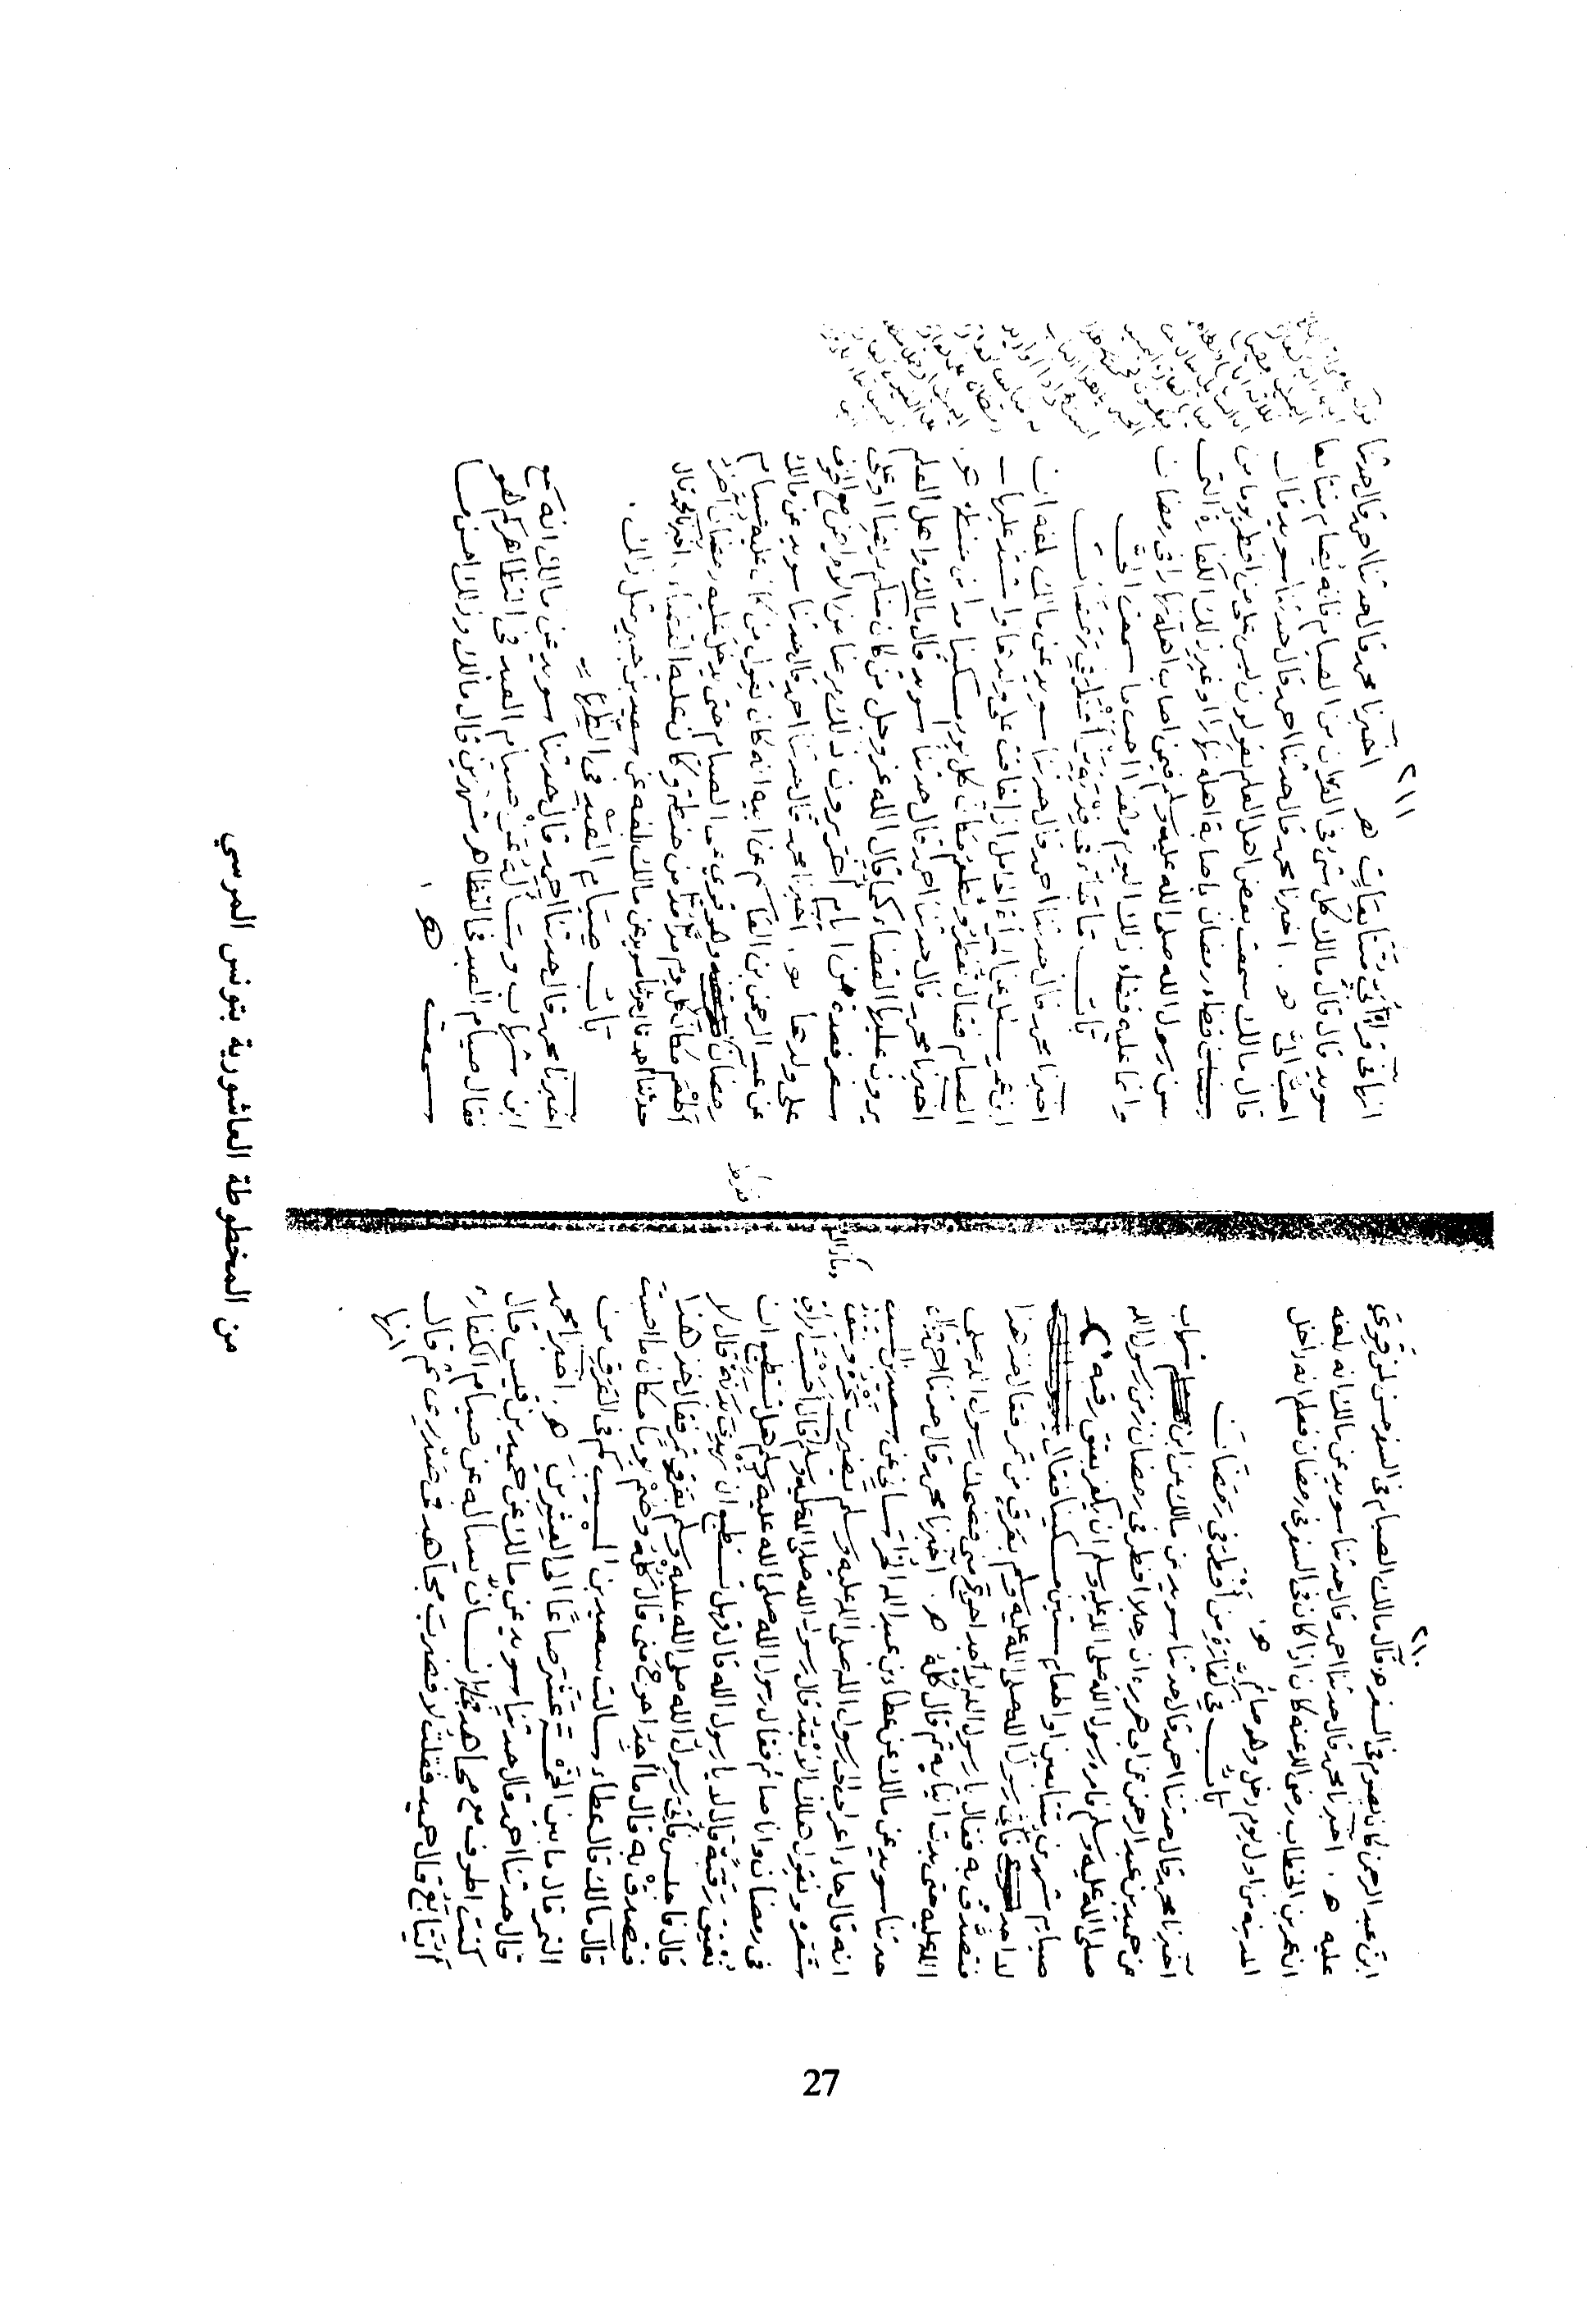 ٢١٠
ابن عبد الرحمن كان يصوم في السفر قال مالك الصيام في السفر حسن لمن قوي
عليه هـ اخبرنا محمد قال حدثنا احمد قال حدثنا سويد عن مالك انه بلغه
ان عمر بن الخطاب رضي الله عنه كان اذا كان في السفر في رمضان فعلم انه داخل
المدينة من اول يوم دخل وهو صائم هـ
باب في كفارة من افطر في رمضان
اخبرنا محمد قال حدثنا احمد قال حدثنا سويد عن مالك عن ابن شهاب
عن حميد بن عبد الرحمن عن ابي هريرة ان رجلا افطر في رمضان زمن رسول الله
صلى الله عليه وسلم فامره رسول الله صلى الله عليه وسلم ان يكفر بعتق رقبة او
صيام شهرين متتابعين او اطعام ستين مسكينا فقال
لا اجد فاتي رسول الله صلى الله عليه وسلم بعرق من تمر فقال خذ هذا
فتصدق به فقال يا رسول الله لا اجد احوج مني فضحك رسول الله صلى
الله عليه حتى بدت انيابه ثم قال كله هـ اخبرنا محمد قال حدثنا احمد قال
حدثنا سويد عن مالك عن عطاء بن عبد الله الخراساني عن سعيد بن المسيب
انه قال جاء اعرابي الى رسول الله صلى الله عليه وسلم يضرب نحره وينتف
شعره ويقول هلك الابعد فقال رسول الله صلى الله عليه وسلم وما ذاك قال اصبت امراتي
في رمضان وانا صائم فقال رسول الله صلى الله عليه وسلم هل تستطيع ان
تعتق رقبة قال لا يا رسول الله قال فهل تستطيع ان تهدي بدنة قال لا
قال فاجلس فاتي رسول الله صلى الله عليه وسلم بعرق تمر فقال خذ هذا
فتصدق به قال ما اجد احوج مني قال كله وصم يوما مكان ما اصبت
قال مالك قال عطاء سالت سعيد بن المسيب كم في العرق من
التمر قال ما بين الخمسة عشر صاعا الى العشرين هـ اخبرنا محمد
قال حدثنا احمد قال حدثنا سويد عن مالك عن حميد بن قيس قال
كنت اطوف مع مجاهد فجاءه انسان يساله عن صيام الكفارة
أيتابع قال حميد فقلت لا فضرب مجاهد في صدري ثم قال
انها
٢١١
انها في قراءة ابي متتابعات هـ اخبرنا محمد قال حدثنا احمد قال حدثنا
سويد قال قال مالك كل شيء في القران من الصيام فانه يصام متتابعا
احب الي هـ اخبرنا محمد قال حدثنا احمد قال حدثنا سويد قال
قال مالك سمعت بعض اهل العلم يقولون ليس على من افطر يوما من
قضاء رمضان باصابة اهله نهارا او غير ذلك الكفارة التي
عن رسول الله صلى الله عليه وسلم فيمن اصاب اهله نهارا في رمضان
وانما عليه قضاء ذلك اليوم وهذا احب ما سمعت الي
باب ما جاء في فدية من افطر في رمضان
اخبرنا محمد قال حدثنا احمد قال حدثنا سويد عن مالك بلغه ان
ابن عمر سئل عن المراة الحامل اذا خافت على ولدها واشتد عليها
الصيام فقال تفطر وتطعم مكان كل يوم مسكينا مدا من حنطة هـ
اخبرنا محمد قال حدثنا احمد قال حدثنا سويد قال مالك واهل العلم
يرون عليها القضاء كما قال الله عز وجل فمن كان منكم مريضا او على
سفر فعدة من ايام اخر يرون ذلك مرضا من الامراض مع الخوف
على ولدها هـ اخبرنا محمد قال حدثنا احمد قال حدثنا سويد عن مالك
عن عبد الرحمن بن القاسم عن ابيه انه كان يقول من كان عليه صيام
رمضان وهو قوي على الصيام حتى يدخل عليه رمضان اخر
اطعم مكان كل يوم مدا من حنطة وكان عليه القضاء اخبرنا محمد قال
حدثنا احمد قال حدثنا سويد عن مالك بلغه عن سعيد بن جبير مثل ذلك
باب صيام العبد في الظهار
اخبرنا محمد قال حدثنا احمد قال حدثنا سويد عن مالك انه سمع
ابن شهاب وسئل عن صيام العبد في التظاهر كم هو
فقال صيام العبد في التظاهر شهرين قال مالك وذلك احسن ما
سمعت هـ
من المخطوطة العاشورية بتونس المرسي
27